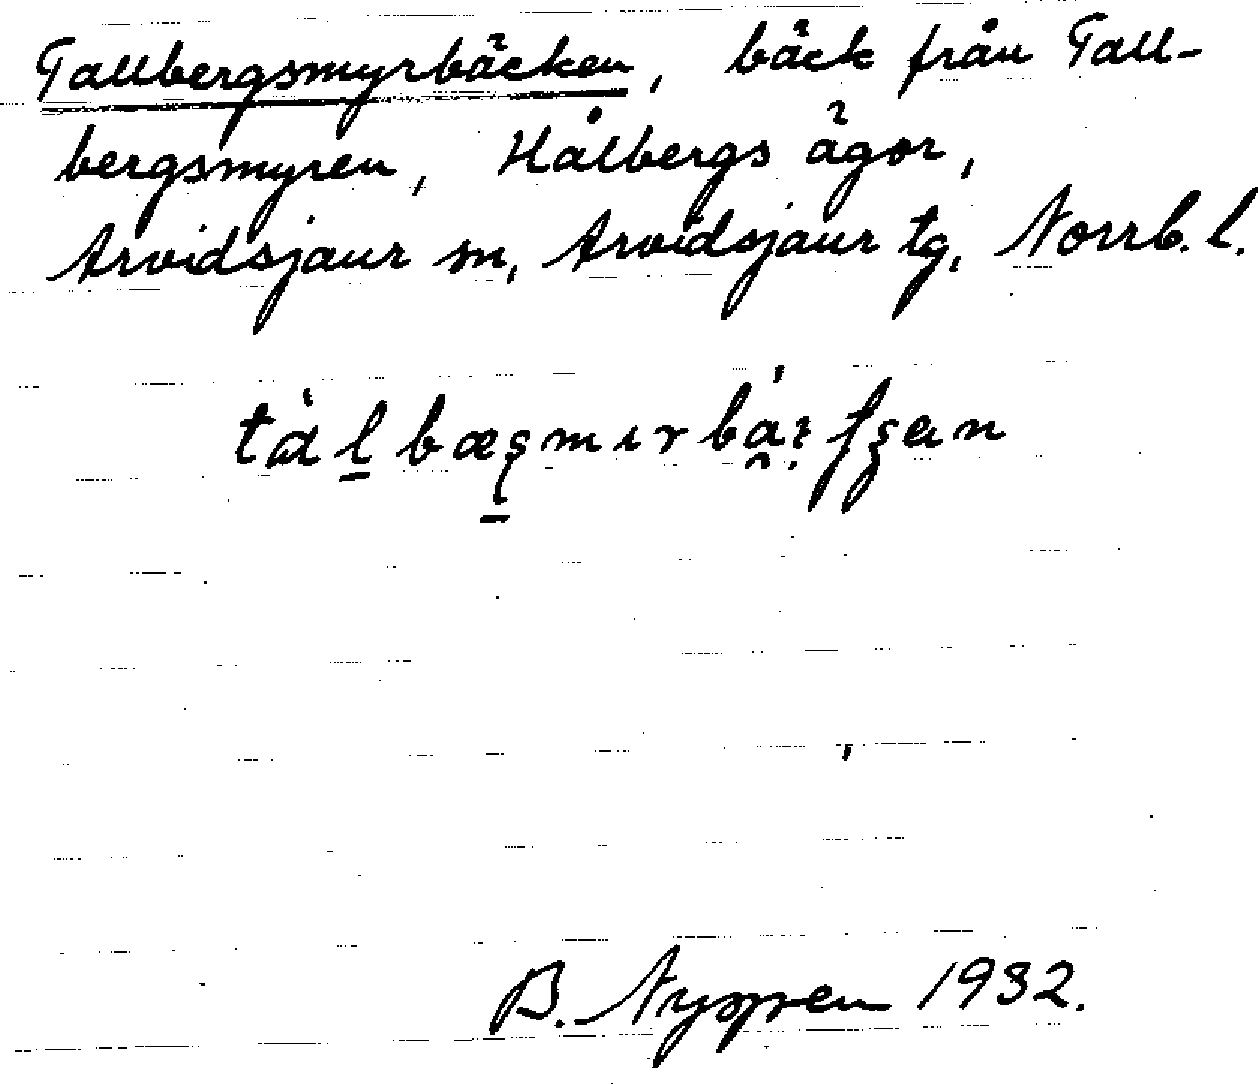 Tallbergsmyrbäcken, bäck från Tall-
bergsmyren, Hålbergs ägor,
Arvidsjaur sn, Arvidsjaur tg, Norrb. l.
B. 1932.